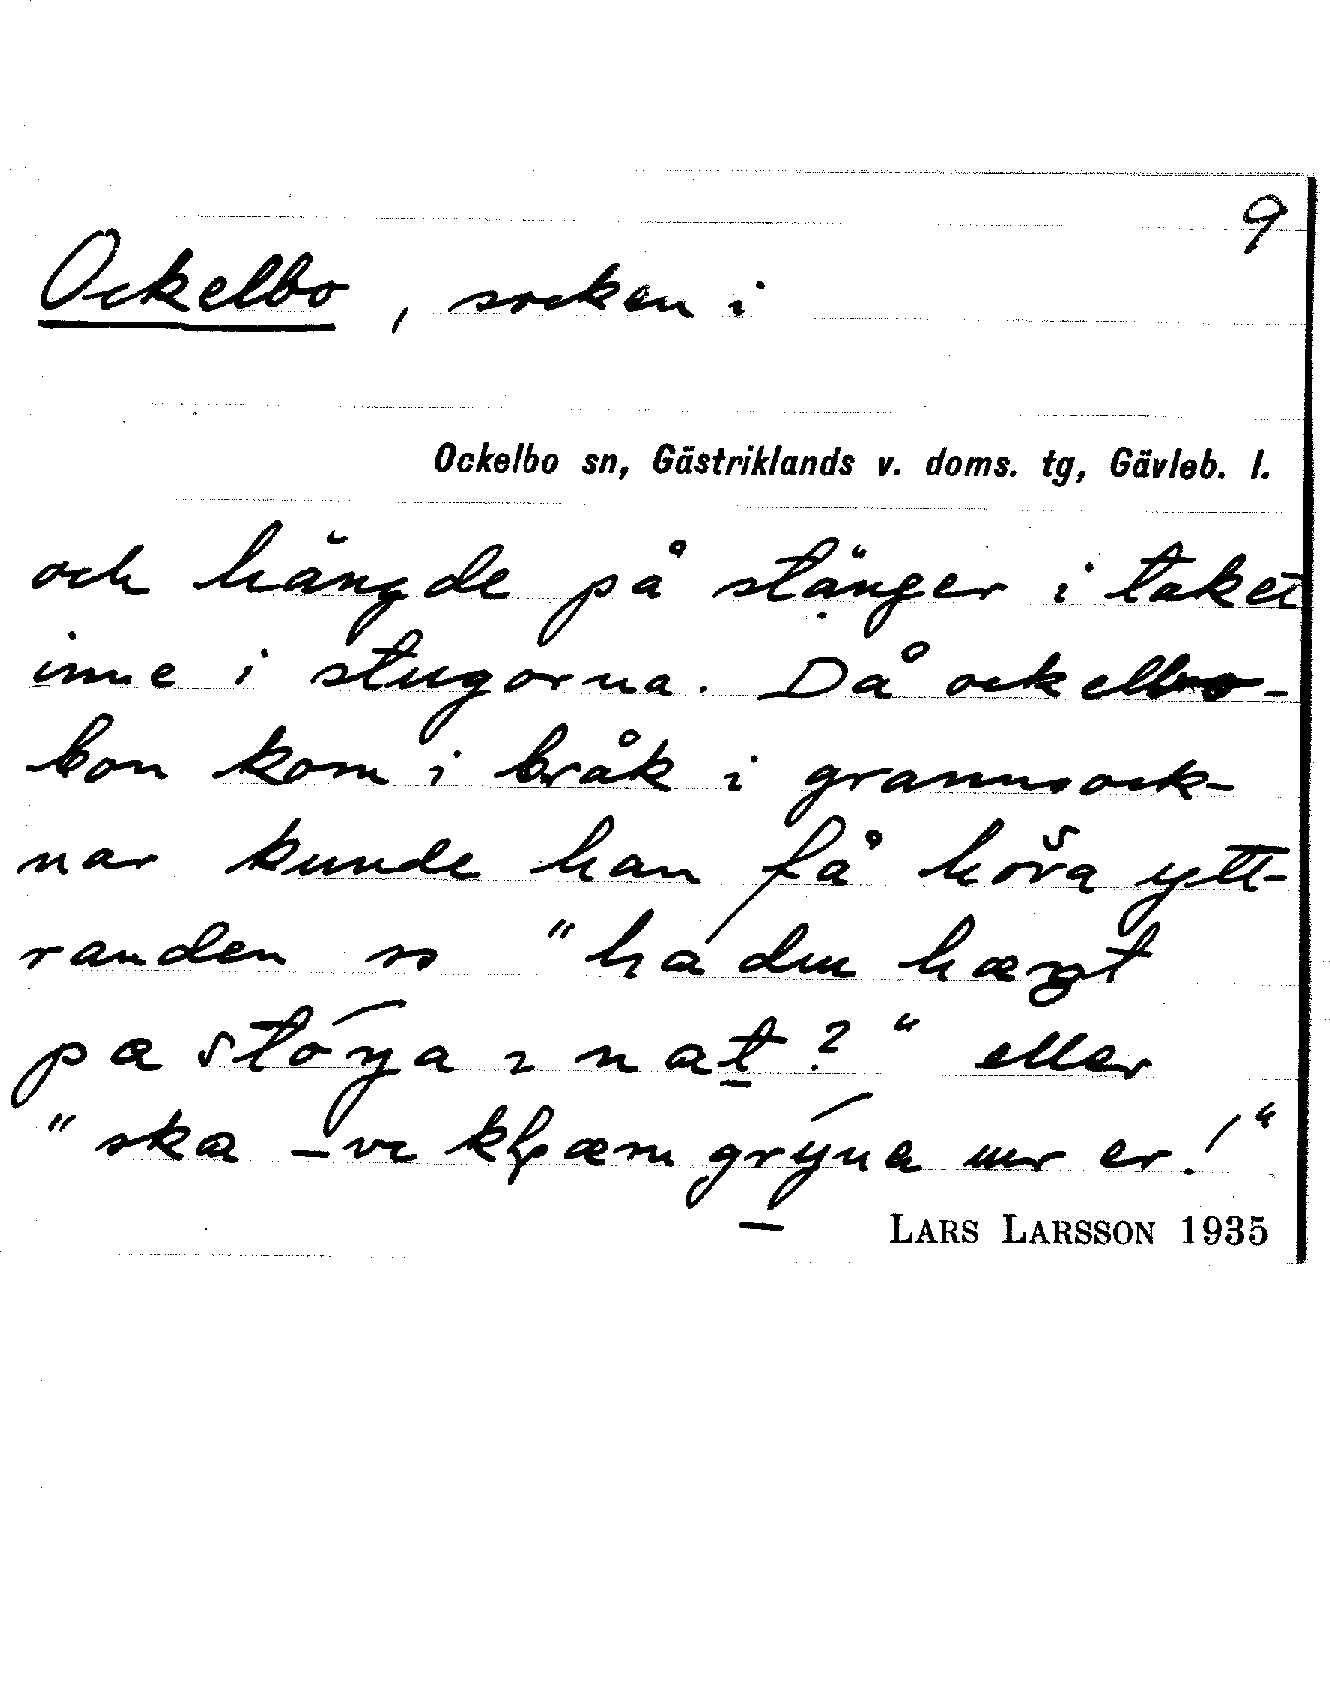 9
Ockelbo, socken i
Ockelbo sn, Gästriklands v. doms. tg, Gävleb. l.
och hängde på stänger i taket
inne i stugorna. Då ockelbo-
bon kom i bråk i grannsock-
nar kunde han få höra ytt-
randen so "ha du hæŋt
pa stó̄ŋa ı nat?" eller
"ska vı klæm grýna ur er!"
LARS LARSSON 1935